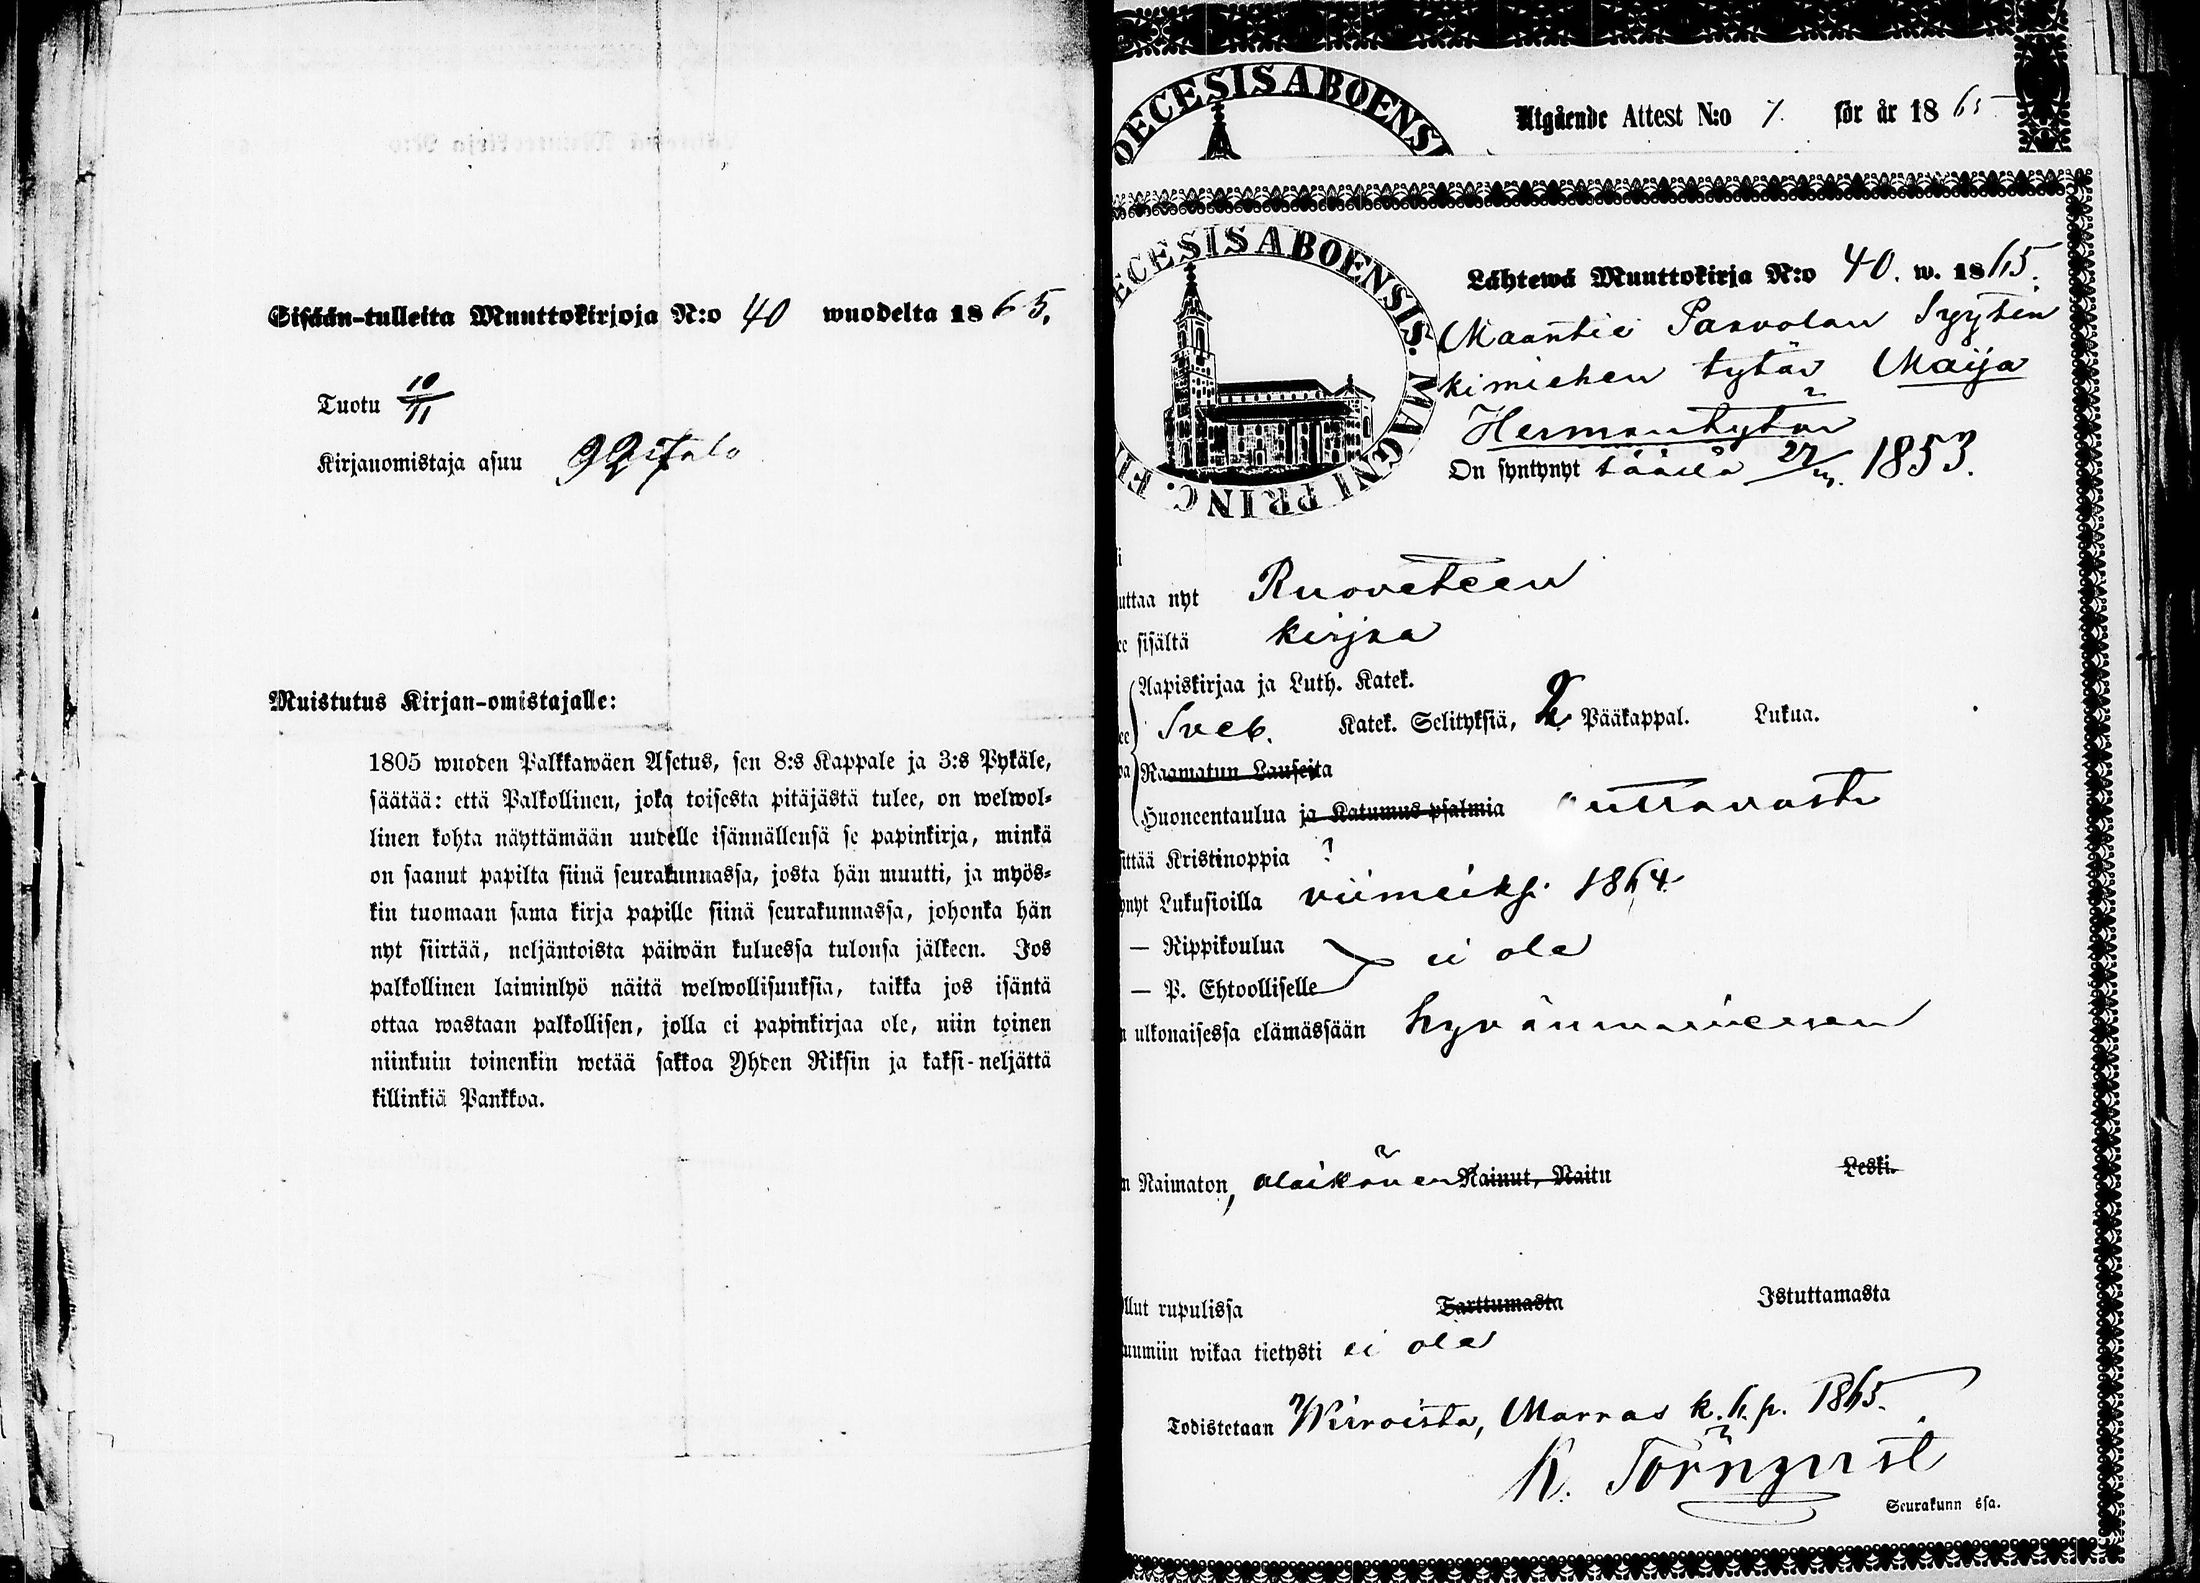 Sisään-tulleita Muuttokirjoja N:o 40 wuodelta 1865.
Tuotu 10/11
Kirjanomistaja asuu
Muistutus Kirjan-omistajalle:
1805 wuoden Palkkawäen Asetus, sen 8:s Kappale ja 3:s Pykäle,
säätää: että Palkollinen, joka toisesta pitäjästä tulee, on welwol-
linen kohta näyttämään uudelle isännällensä se papinkirja, minkä
on saanut papilta siinä seurakunnassa, josta hän muutti, ja myös-
kin tuomaan sama kirja papille siinä seurakunnassa, johonka hän
nyt siirtää, neljäntoista päiwän kuluessa tulonsa jälkeen. Jos
palkollinen laiminlyö näitä welwollisuuksia, taikka jos isäntä
ottaa wastaan palkollisen, jolla ei papinkirjaa ole, niin toinen
niinkuin toinenkin wetää sakkoa Yhden Riksin ja kaksi-neljättä
killinkiä Pankkoa.
OECESIS ABOENSI
Utgående Attest N:o 7. för år 1865
ECESIS ABOENSIS. MAGNI PRINC. FI
Lähtewä Muuttokirja N:o 40. w. 1865.
Maantie Syytin
kimiehen tytär Maija
Hermantytär
On syntynyt täällä 27/ 1853.
uttaa nyt Ruoveteen
sisältä kirjaa
Aapiskirjaa ja Luth. Katek.
Sveb. Katek. Selityksiä, 2 Pääkappal. Lukua.
Raamatun Lauseita
Huoneentaulua ja Katumus-psalmia auttavasti
sittää Kristinoppia ?
ynyt Lukusioilla viimeiksi 1864
— Rippikoulua
ei ole
— P. Ehtoolliselle
n ulkonaisessa elämässään hyvänmaineisen
n Naimaton, alaikäinen Nainut, Naitu Leski.
llut rupulissa Tarttumasta Istuttamasta
uumiin wikaa tietysti ei ole
Todistetaan Wirroista, Marras k. 6. p. 1865.
K. Törnqvist
Seurakunn ssa.